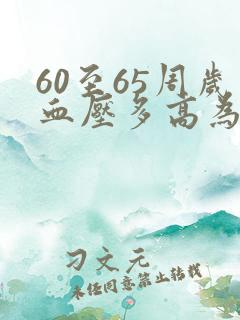 60至65周歲
血壓多高為
刁文元
未经同意禁止转载